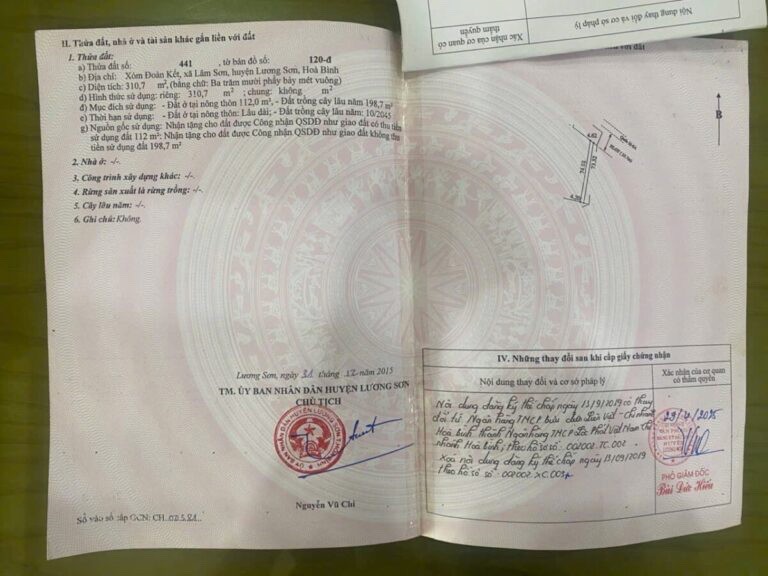 II. Thửa đất, nhà ở và tài sản khác gắn liền với đất
1. Thửa đất:
a) Thửa đất số: 441 , tờ bản đồ số: 120-đ
b) Địa chỉ: Xóm Đoàn Kết, xã Lâm Sơn, huyện Lương Sơn, Hoà Bình
c) Diện tích: 310,7 m², (bằng chữ: Ba trăm mười phẩy bảy mét vuông)
d) Hình thức sử dụng: riêng: 310,7 m²; chung: không m²
đ) Mục đích sử dụng: - Đất ở tại nông thôn 112,0 m², - Đất trồng cây lâu năm 198,7 m²
e) Thời hạn sử dụng: - Đất ở tại nông thôn: Lâu dài; - Đất trồng cây lâu năm: 10/2045
g) Nguồn gốc sử dụng: Nhận tặng cho đất được Công nhận QSDĐ như giao đất có thu tiền
sử dụng đất 112 m²; Nhận tặng cho đất được Công nhận QSDĐ như giao đất không thu
tiền sử dụng đất 198,7 m²
2. Nhà ở: -/-
3. Công trình xây dựng khác: -/-
4. Rừng sản xuất là rừng trồng: -/-
5. Cây lâu năm: -/-
6. Ghi chú: Không.
Lương Sơn, ngày 31 tháng 12 năm 2015
TM. ỦY BAN NHÂN DÂN HUYỆN LƯƠNG SƠN
CHỦ TỊCH
Nguyễn Vũ Chi
Số vào sổ cấp GCN: CH
Nội dung thay đổi và cơ sở pháp lý
Xác nhận của cơ quan có
thẩm quyền
B
4.62
74.03
73.32
IV. Những thay đổi sau khi cấp giấy chứng nhận
Nội dung thay đổi và cơ sở pháp lý
Xác nhận của cơ quan
có thẩm quyền
Nội dung đăng ký thế chấp ngày 13/9/2019 có thay
đổi từ Ngân hàng TMCP bưu điện Liên Việt - Chi nhánh
Hoà bình thành Ngân hàng TMCP Lộc Phát Việt Nam Chi
nhánh Hoà Bình, theo hồ sơ số: 002002.TC.002
Xoá nội dung đăng ký thế chấp ngày 13/09/2019
theo hồ sơ số: 002002.XC.003
29/4/2025
PHÓ GIÁM ĐỐC
Bùi Đức Hiếu